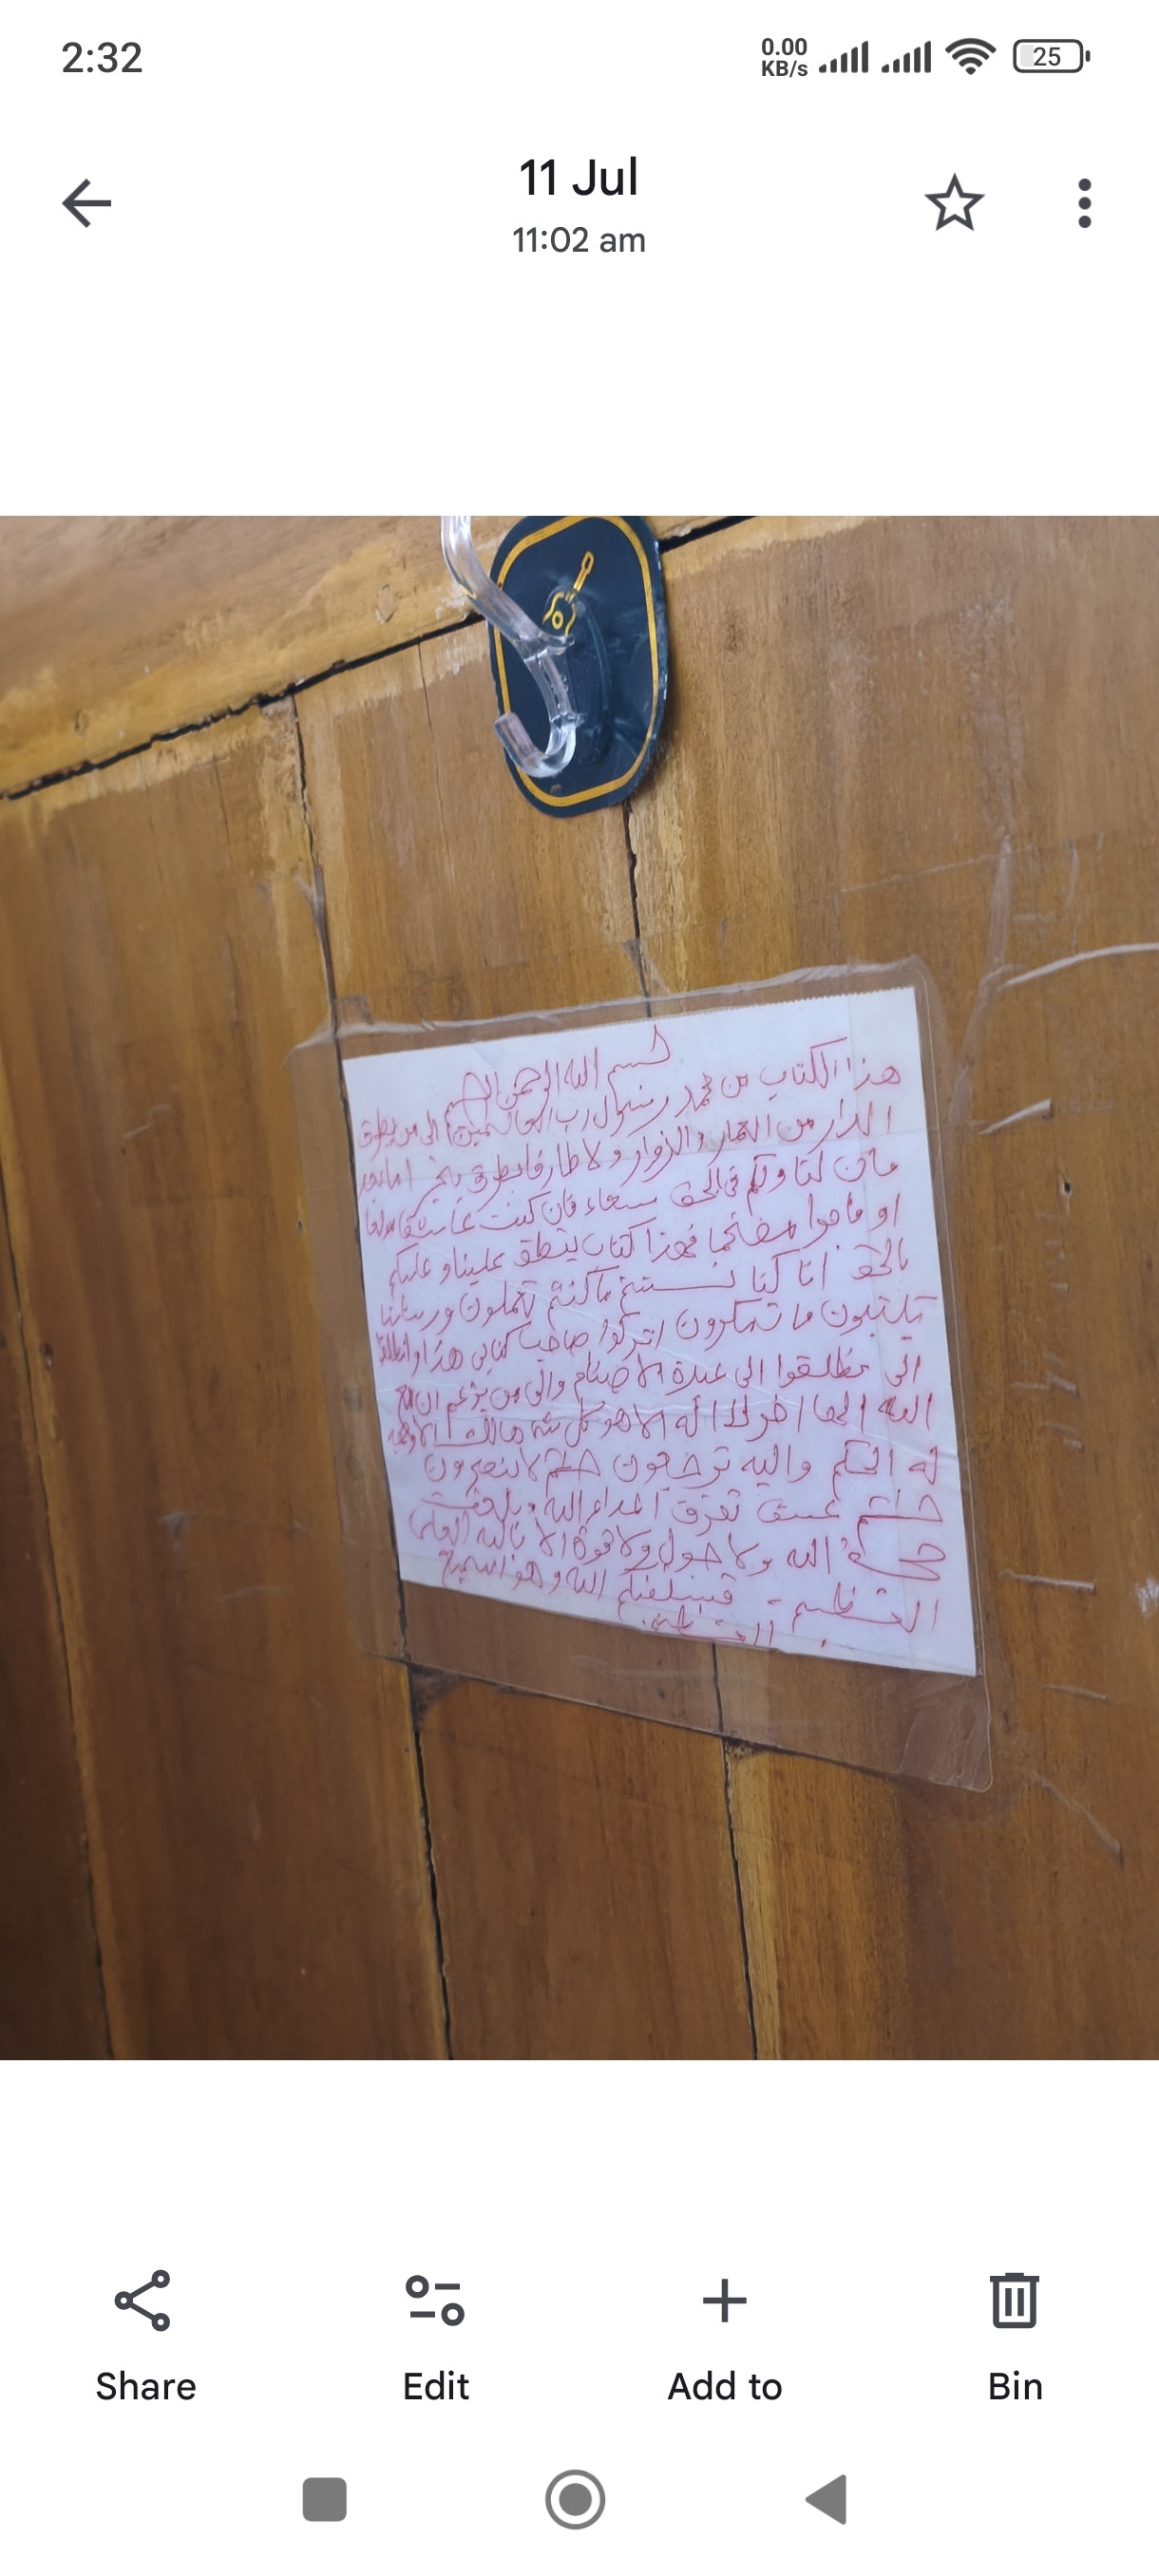 2:32
0.00
KB/s
25
11 Jul
11:02 am
بسم الله الرحمن الرحيم
هذا الكتاب من محمد رسول رب العالمين الى من يطرق
الدار من العمار والزوار ولا طارقا يطرق بخير اما بعد
فان لنا ولكم في الحق سعاء فان كنت عاشقا مولعا
او فاجرا مقتحما فهذا كتاب ينطق علينا وعليكم
بالحق انا كنا نستنسخ ما كنتم تعملون ورسلنا
يكتبون ما تمكرون اتركوا صاحب كتابى هذا وانطلقوا
الى عبدة الاصنام والى من يزعم ان مع
الله الها اخر لا اله الا هو كل شئ هالك الا وجهه
له الحكم واليه ترجعون حم لا ينصرون
حم عسق تفرق اعداء الله وبلغت
حجة الله ولا حول ولا قوة الا بالله العلى
العظيم - فسيكفيكهم الله وهو السميع
Share
Edit
Add to
Bin